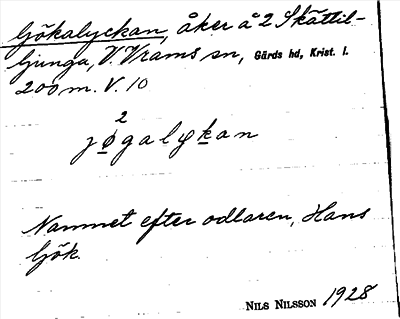 Gökalyckan, åker å 2 Skättil-
ljunga, V. Vrams sn, Gärds hd, Krist. l.
200 m. V. 10
2
jøgalykan
Namnet efter odlaren, Hans
Gök.
NILS NILSSON 1928